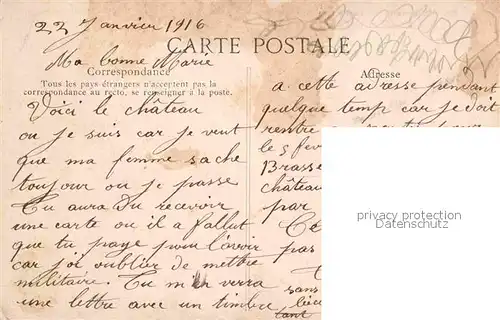 22 Janvier 1916
CARTE POSTALE
Ma bonne Marie
Correspondance
Tous les pays étrangers n'acceptent pas la
correspondance au recto, se renseigner à la poste.
Voici le château
ou je suis car je veut
que ma femme sache
toujour ou je passe
Tu aura Du recevoir
une carte ou il a fallut
que tu paye pour l'avoir
car j'ai oublier de mettre
militaire. Tu verra
une lettre avec un timbre
Adresse
a cette adresse pendant
quelque temp car je doit
rentre
le 5 fev
Brasse
château
par
pas
sans
tant
privacy protection
Datenschutz